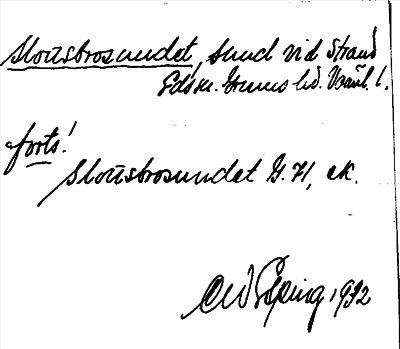 Slottsbrosundet, sund vid Strand
Edsm. Grums hd. Värml. l.
forts!
Slottsbrosundet G. 71, ek.
1932